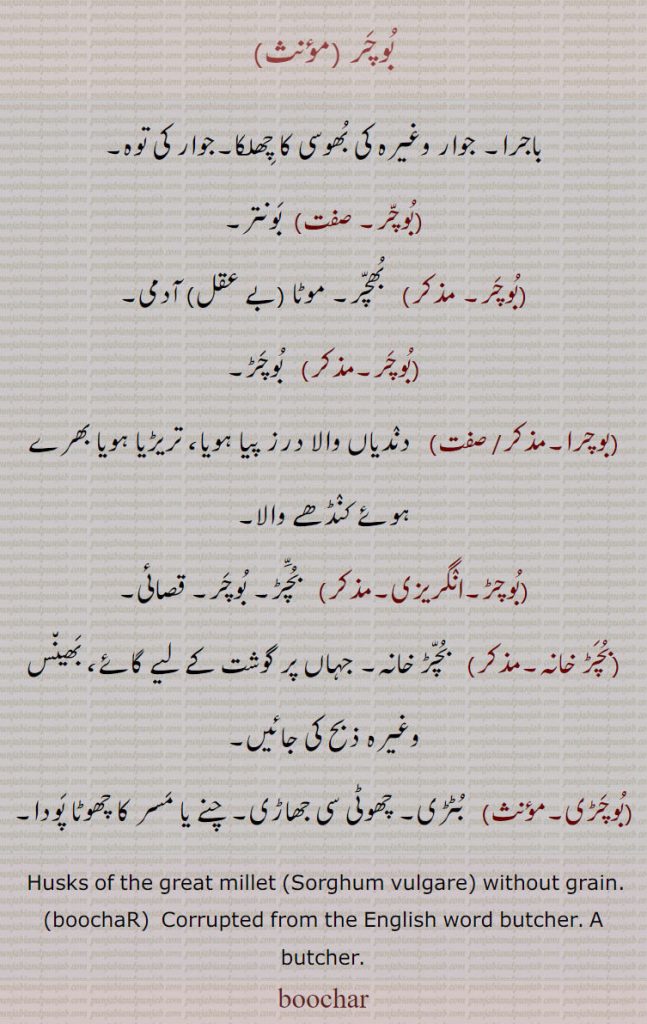 بُوچَر (مؤنث)
باجرا۔ جوار وغیرہ کی بُھوسی کا چِھلکا۔جوار کی توہ۔
(بُوچّر۔ صفت) بَونتر۔
(بُوچَر۔ مذکر) بُھچّر۔ موٹا (بے عقل) آدمی۔
(بُوچَر۔مذکر) بُوچَڑ۔
(بوچرا۔مذکر/ صفت) دندیاں والا درز پیا ہویا، تریڑیا ہویا بھرے
ہوئے کنڈھے والا۔
(بُوچڑ۔انگریزی۔مذکر) بُچّڑ۔ بُوچَر۔ قصائی۔
(بُچَڑ خانہ۔مذکر) بُچّڑ خانہ۔ جہاں پر گوشت کے لیے گائے، بَھینس
وغیرہ ذبح کی جائیں۔
(بُوچَڑی۔مؤنث) بُٹڑی۔ چھوٹی سی جھاڑی۔ چنے یا مَسر کا چھوٹا پَودا۔
Husks of the great millet (Sorghum vulgare) without grain.
(boochaR) Corrupted from the English word butcher. A
butcher.
boochar